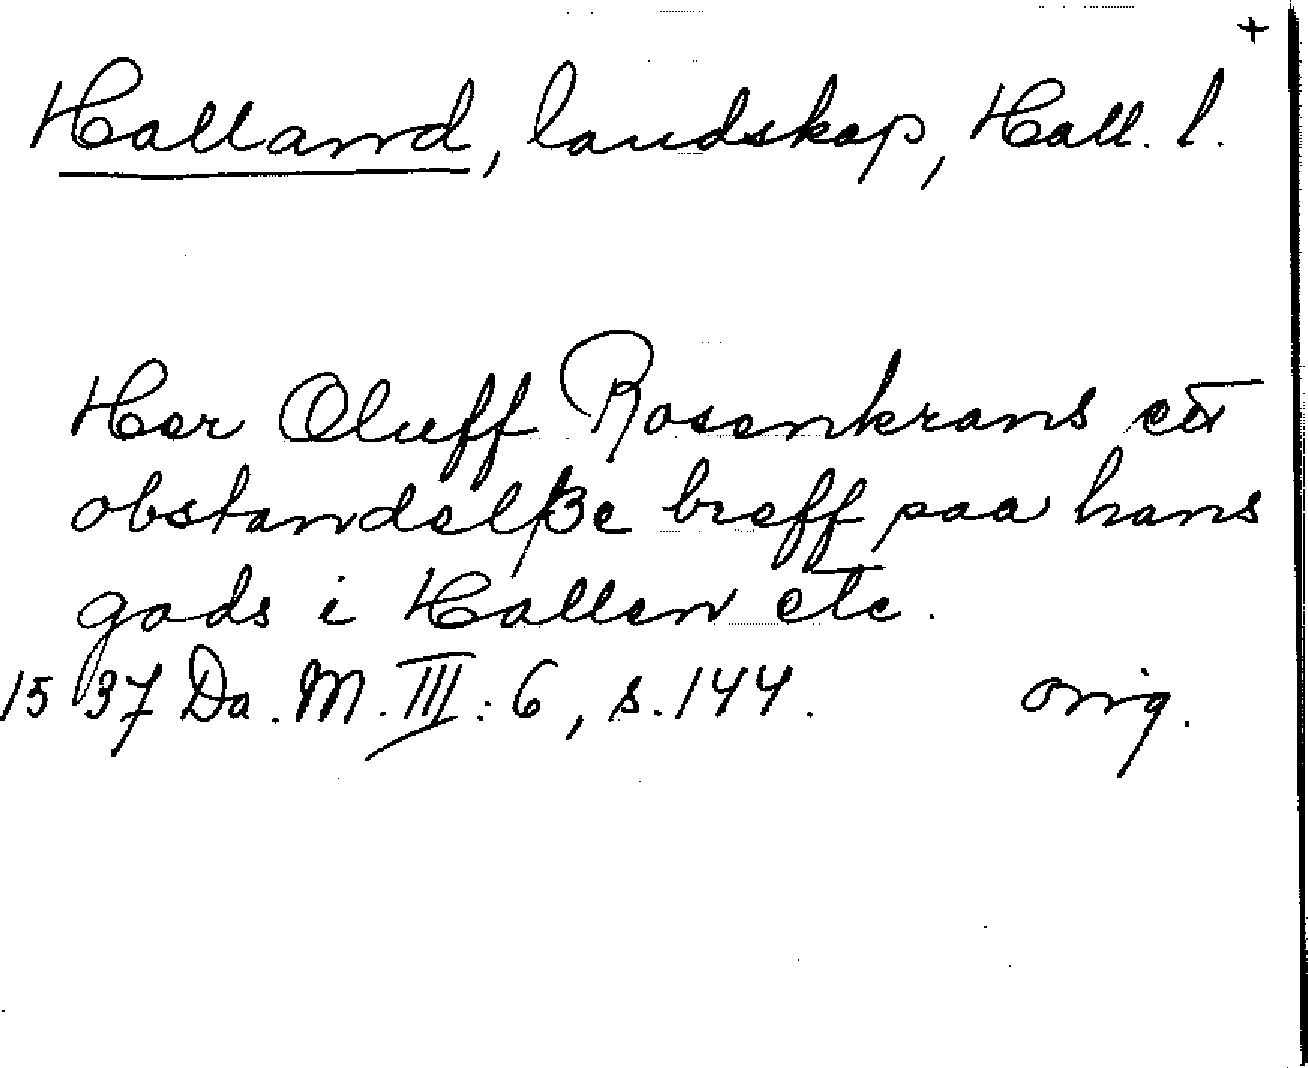 +
Halland, landskap, Hall. l.
Her Oluff Rosenkrans ett
obstandelße breff paa hans
gods i Hallen etc.
1537 Da. M. III: 6, s. 144. orig.